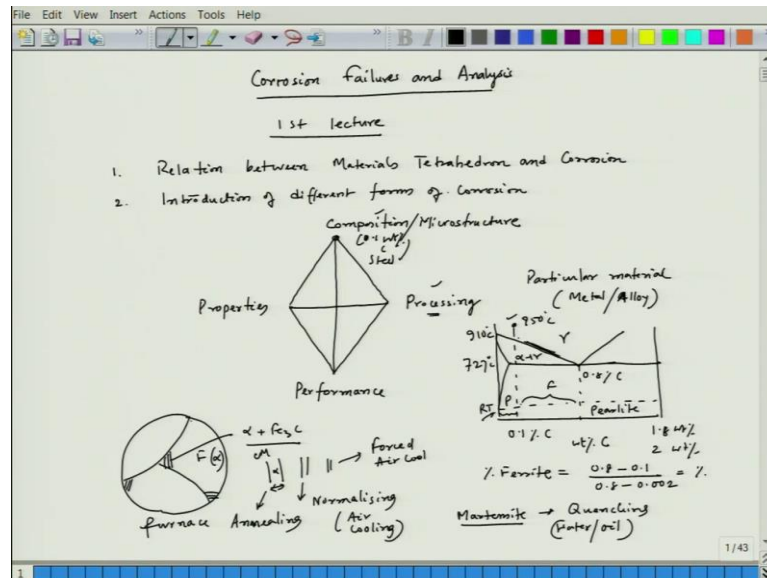 File Edit View Insert Actions Tools Help
Corrosion failures and Analysis
1st lecture
1. Relation between Materials Tetrahedron and Corrosion
2. Introduction of different forms of corrosion
Composition/Microstructure
(0.1 wt%
C
Steel)
Properties
Processing
Performance
Particular material
(Metal/Alloy)
950°C
910°C
γ
α+γ
727°C
0.8% C
F
P
Pearlite
RT
0.1% C
wt% C
1.8 wt%
2 wt%
% Ferrite = 0.8 - 0.1 / 0.8 - 0.002 = %
Martensite → Quenching
(Water/oil)
α + Fe3C
CM
F(α)
α
forced
Air Cool
Normalising
(Air
Cooling)
furnace Annealing
1/43
1